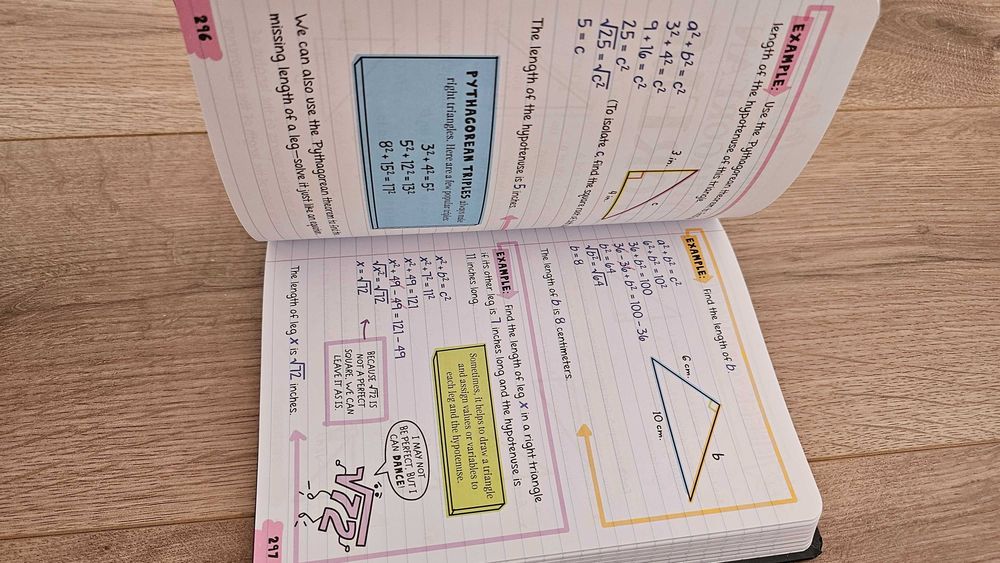 EXAMPLE: Use the Pythagorean
length of the hypotenuse of this triangle.
a² + b² = c²
3² + 4² = c²
9 + 16 = c²
25 = c²
√25 = √c² (To isolate c, find the square
5 = c
3 in.
c
4 in.
The length of the hypotenuse is 5 inches.
PYTHAGOREAN TRIPLES always
right triangles. Here are a few popular
3² + 4² = 5²
5² + 12² = 13²
8² + 15² = 17²
We can also use the Pythagorean theorem to find the
missing length of a leg—solve it just like an equation.
296
EXAMPLE: Find the length of b.
a² + b² = c²
6² + b² = 10²
36 + b² = 100
36 - 36 + b² = 100 - 36
b² = 64
√b² = √64
b = 8
6 cm.
b
10 cm.
The length of b is 8 centimeters.
EXAMPLE: Find the length of leg x in a right triangle
if its other leg is 7 inches long and the hypotenuse is
11 inches long.
x² + b² = c²
x² + 7² = 11²
x² + 49 = 121
x² + 49 - 49 = 121 - 49
√x² = √72
x = √72
Sometimes, it helps to draw a triangle
and assign values or variables to
each leg and the hypotenuse.
BECAUSE √72 IS
NOT A PERFECT
SQUARE, WE CAN
LEAVE IT AS IS.
I MAY NOT
BE PERFECT, BUT I
CAN DANCE!
√72
The length of leg x is √72 inches.
297